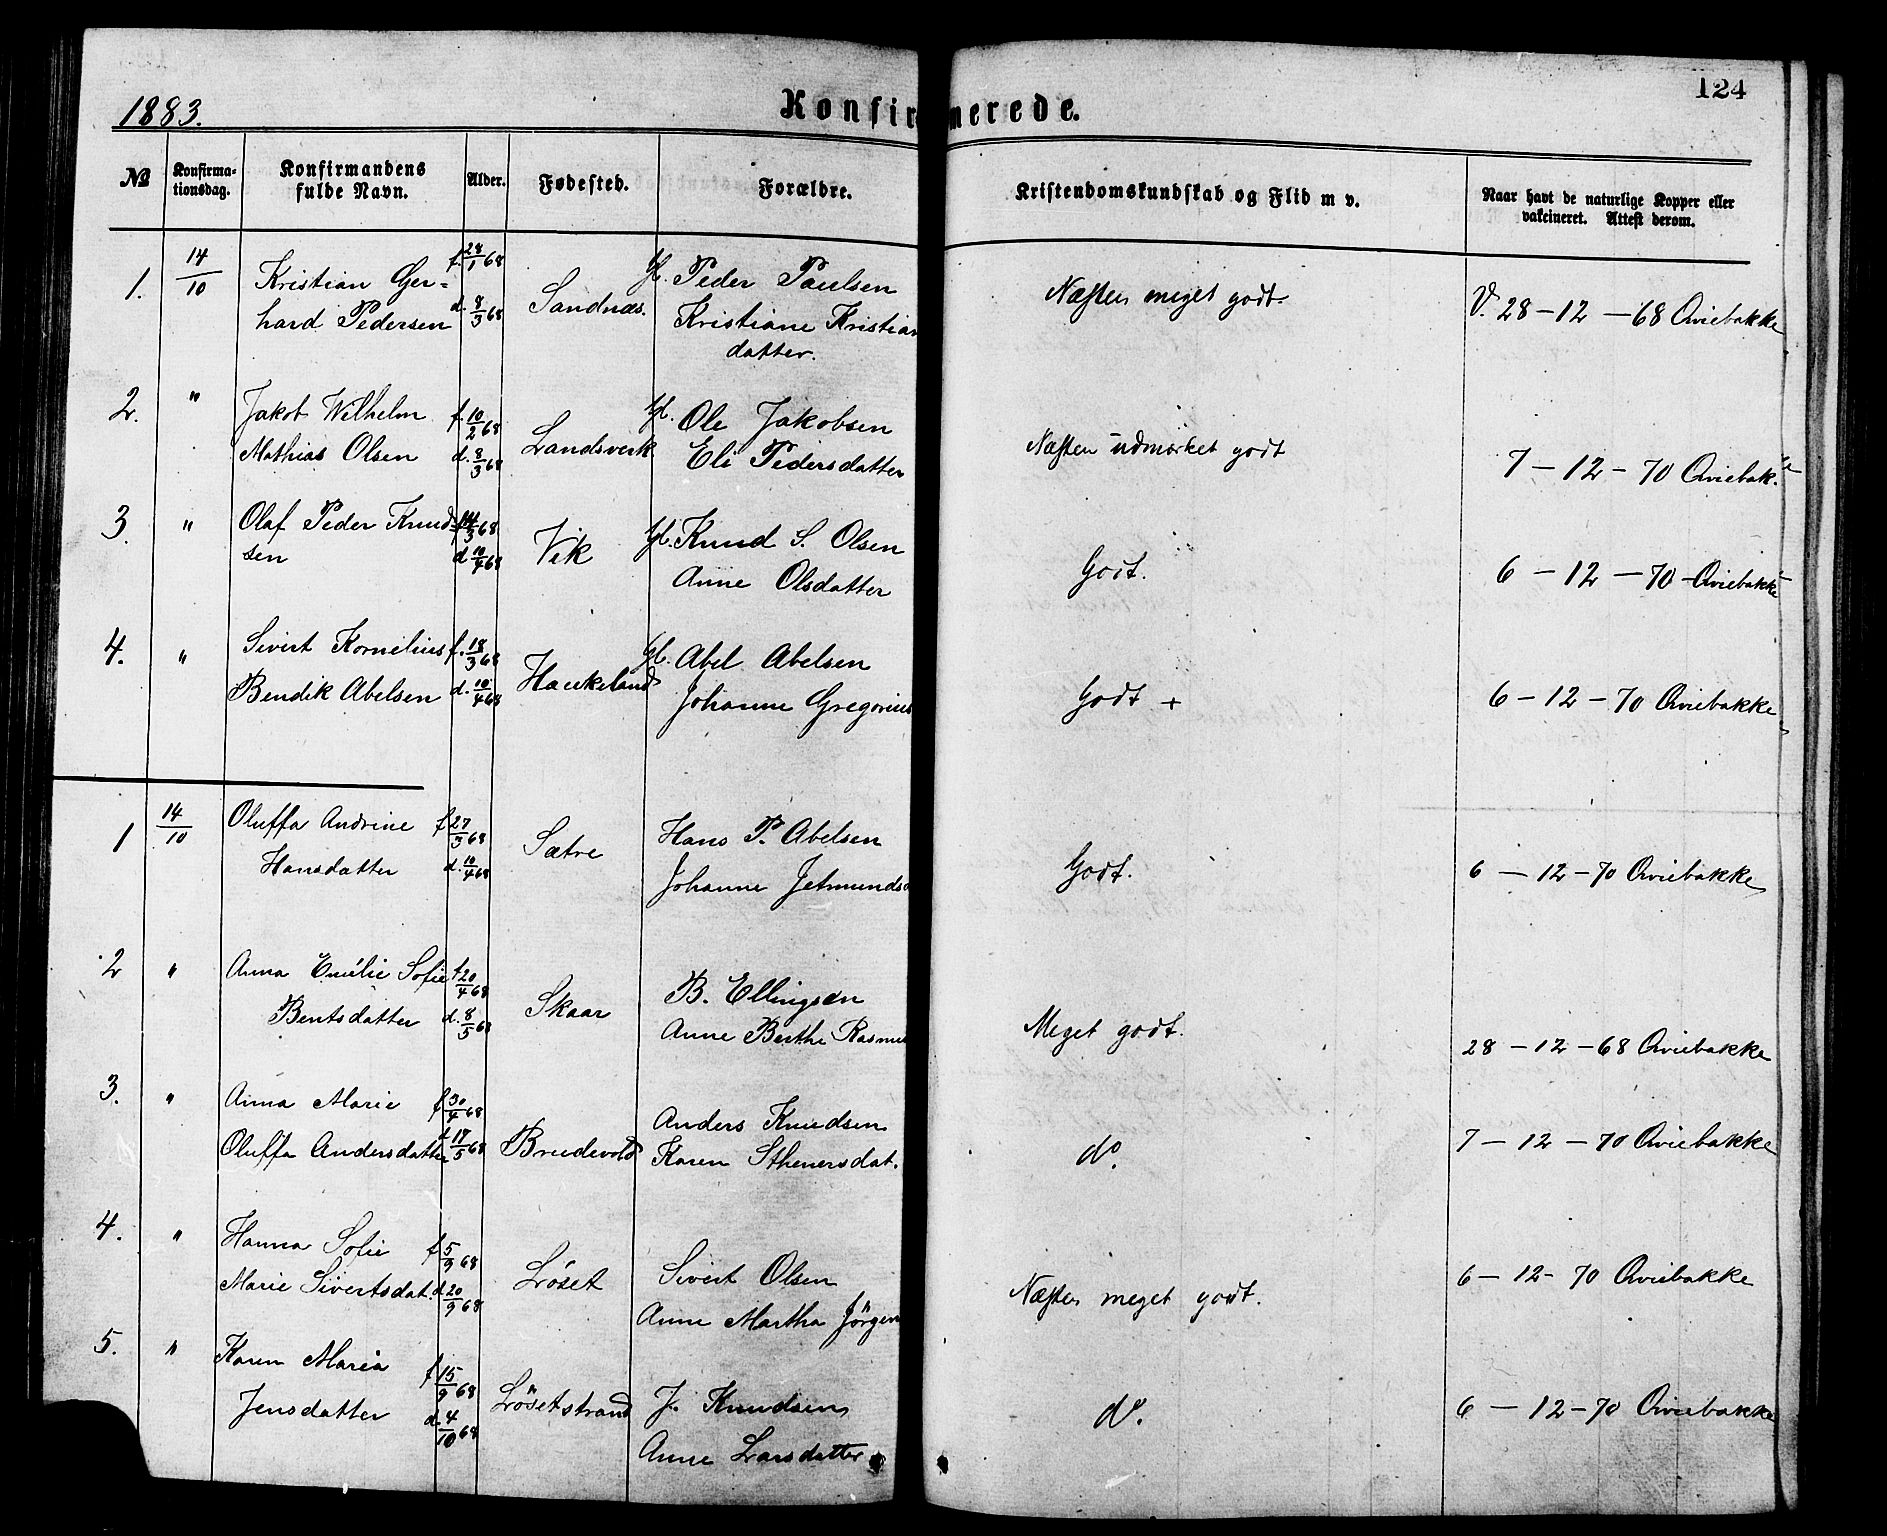 124
1883.
Konfirmerede.
№
Konfirma-
tionsdag.
Konfirmandens
fulde Navn.
Alder.
Fødested.
Forældre.
Kristendomskundskab og Flid m v.
Naar havt de naturlige Kopper eller
vakcineret. Attest derom.
1. 14/10 Kristian Ger= f. 28/1 68 Sandnæs. Peder Paulsen Næsten meget godt. V. 28-12-68 Qviebakke
hard Pedersen d. 8/3 68 Kristiane Kristian
datter.
2. " Jakob Wilhelm f. 10/2 68 Landsverk Ole Jakobsen Næsten udmærket godt 7-12-70 Qviebak.
Mathias Olsen d. 8/3 68 Eli Pedersdatter
3. " Olaf Peder Knud- 68 Vik Knud S. Olsen Godt. 6-12-70 Qviebakke
sen d 10/4 68 Anne Olsdatter
4. " Sivert Kornelius f. 18/3 68 Haukeland Abel Abelsen Godt + 6-12-70 Qviebakke
Bendik Abelsen d. 10/4 68 Johanne Gregorius
1 14/10 Oluffa Andrine f 27/3 68 Sætre Hans P. Abelsen Godt. 6-12-70 Qviebakke
Hansdatter d. 10/4 68 Johanne Jetmundsd
2 " Anna Emilie Sofie f 20/4 68 Skaar B. Ellingsen Meget godt. 28-12-68 Qviebakke
Bentsdatter d. 8/5 68 Anne Berthe Rasmu
3. " Anna Marie f 30/4 68 Brudevold Anders Knudsen do. 7-12-70 Qviebakke
Oluffa Andersdatter d 17/5 68 Karen Sthenersdat.
4. " Hanna Sofie f 5/9 68 Löset Sivert Olsen Næsten meget godt. 6-12-70 Qviebakke
Marie Sivertsdat. d 20/9 68 Anne Martha Jörgen
5. " Karen Maria f 15/9 68 Lösetstrand J. Knudsen do. 6-12-70 Qviebakke
Jensdatter d. 4/10 68 Anne Larsdatter